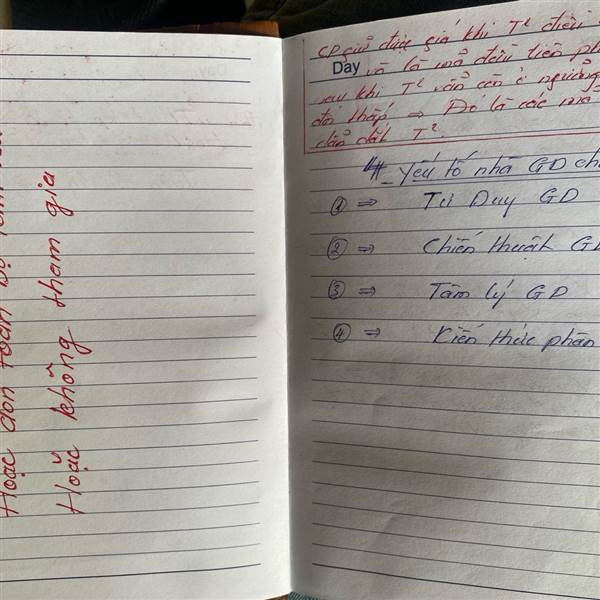 Hoặc dồn toàn bộ
Hoặc không tham gia
CP giữ được giá khi T² điều
Day
và là mã đầu tiên ph
sau khi T² vẫn còn ở ngưỡng
đó thấp → Đó là các mã
dẫn dắt T².
4 - Yếu tố nhà GD ch
① ⇒ Tư Duy GD
② ⇒ Chiến thuật G
③ ⇒ Tâm lý GD
④ ⇒ Kiến thức phân